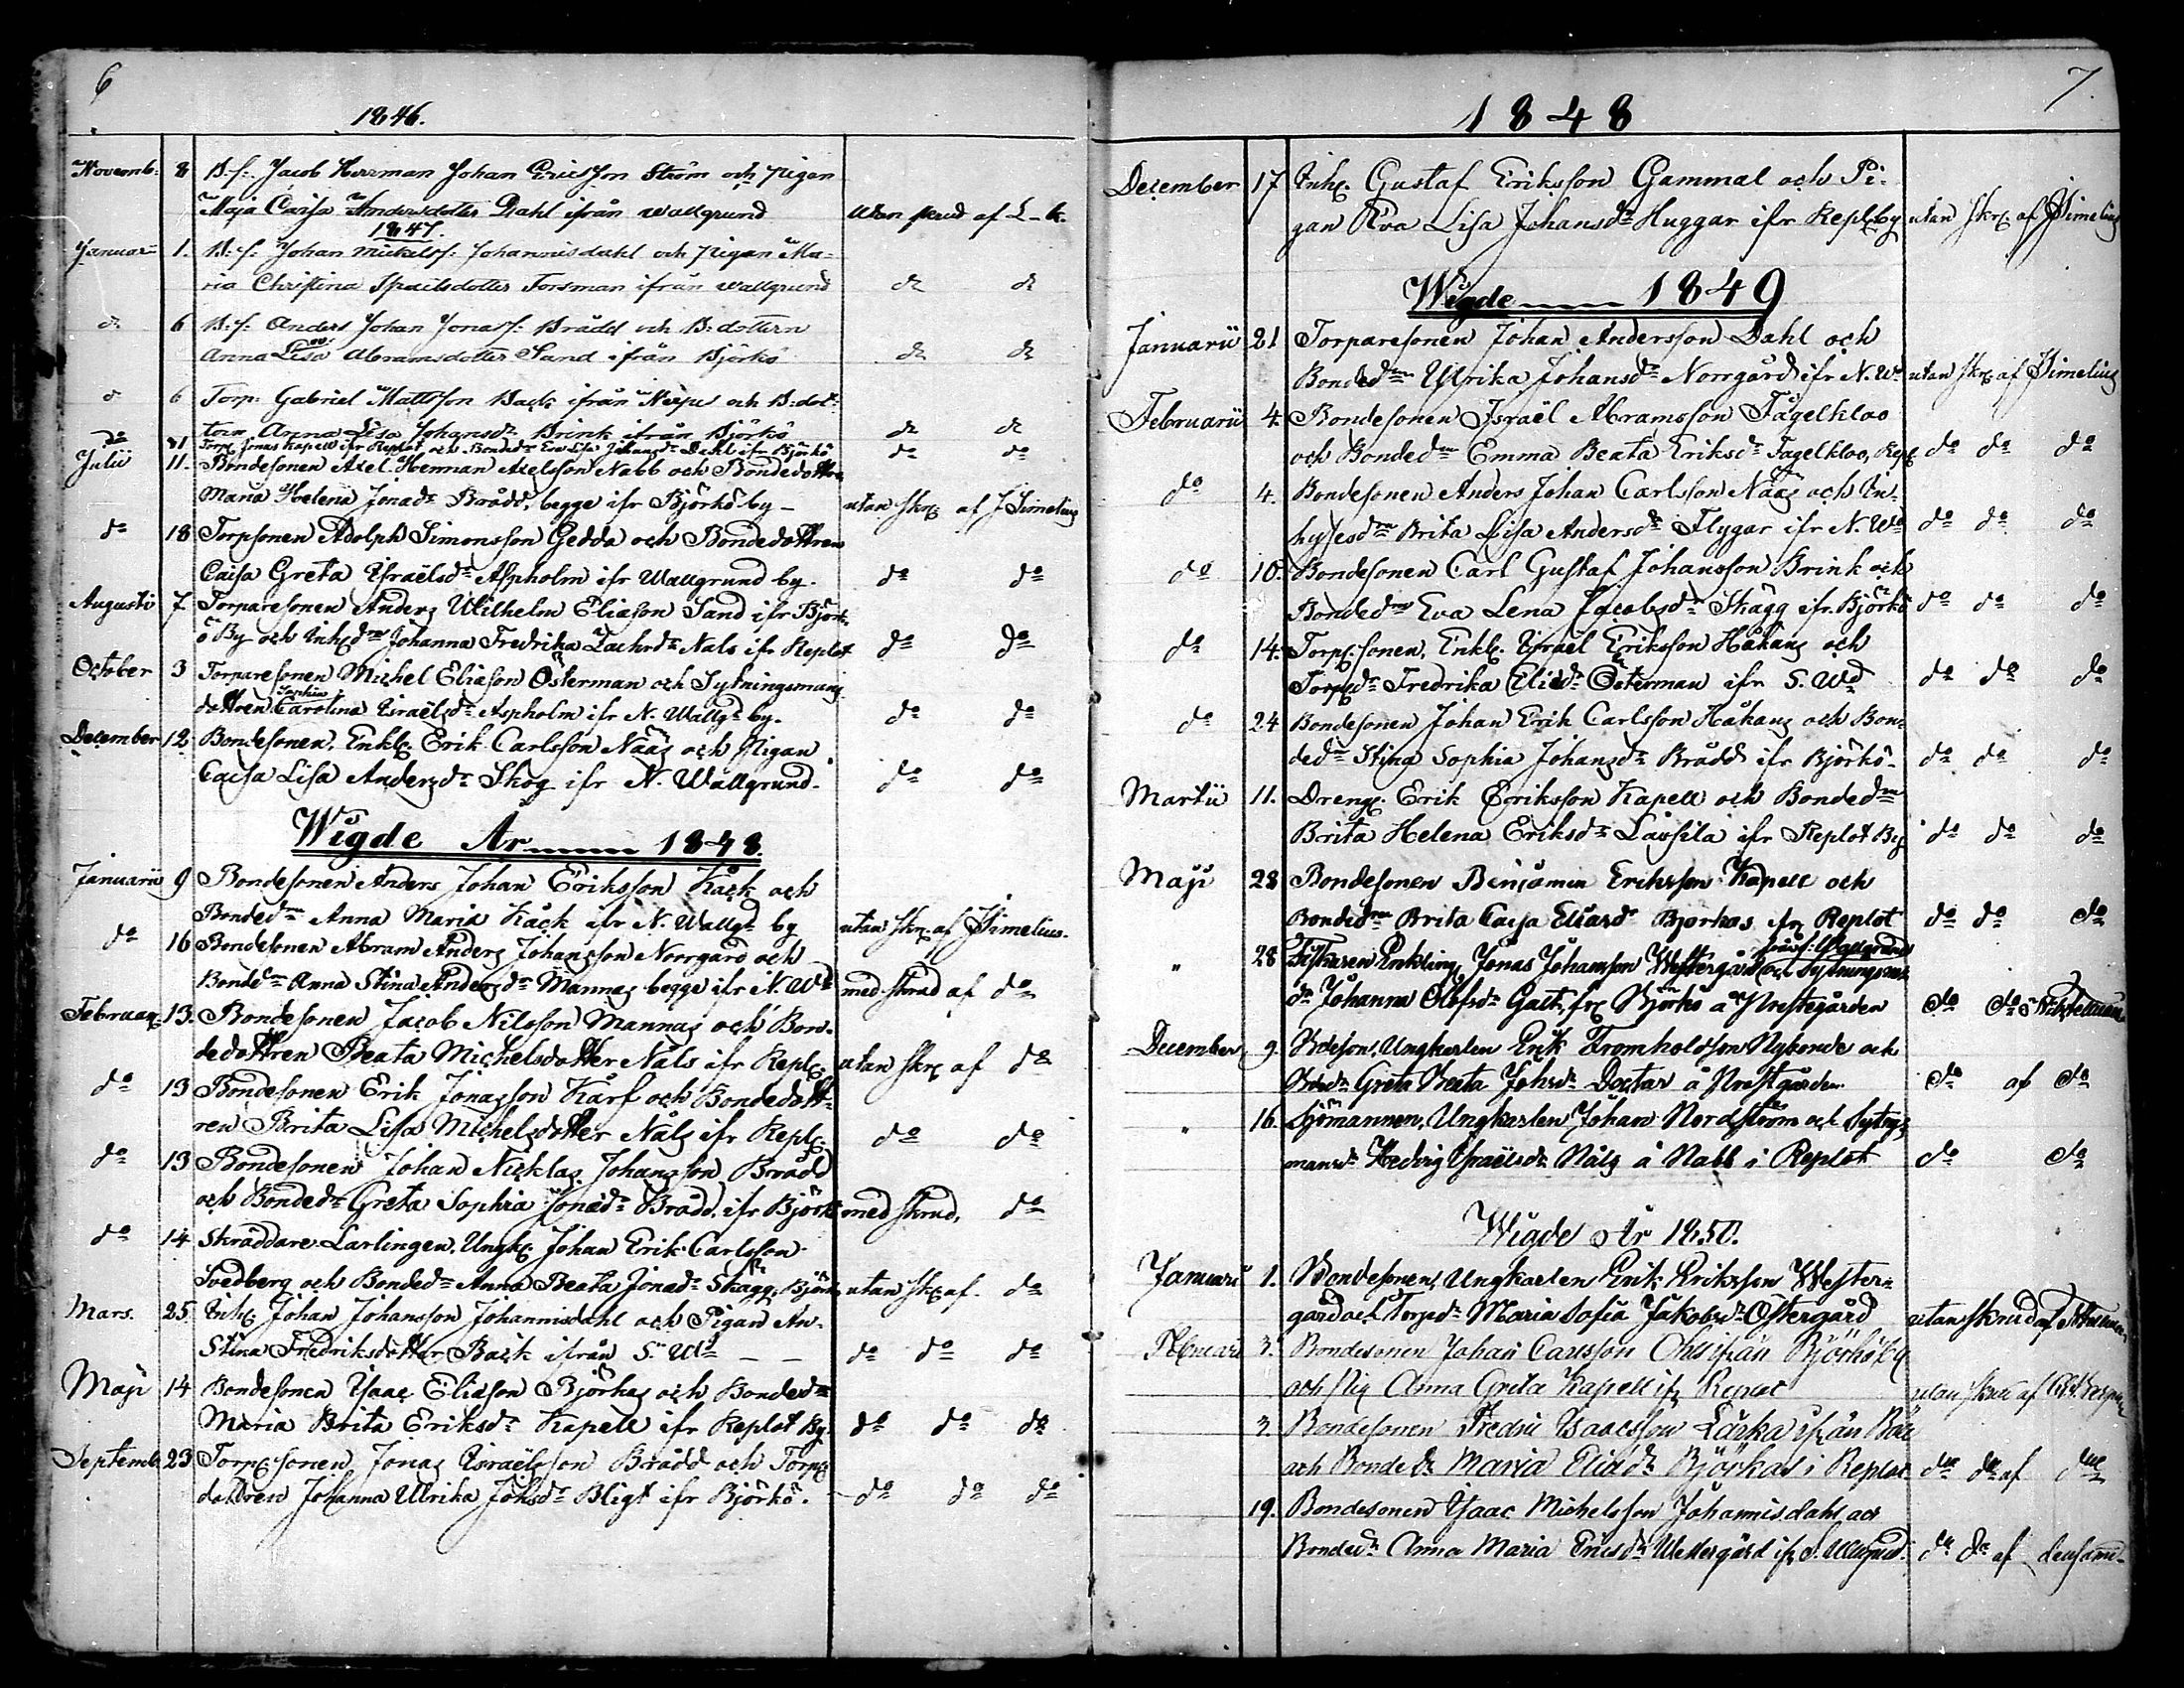 6
1846.
Novemb: 8 B:s: Jacob Herrman Johan Ericsson Ström och pigan
Maja Caisa Andersdotter Dahl ifrån Wallgrund utan skrud af L-k.
1847.
Januari 1. B:s: Johan Mickelss: Johannisdahl och pigan Ma-
ria Christina Isaelsdotter Forsman ifrån Wallgrund do do
do 6 B:s: Anders Johan Jonass: Brådd och B:dottern
Anna Lisa Abramsdotter Sand ifrån Björkö do do
do 6 Torp: Gabriel Mattsson Back ifrån Nerpes och B:dot-
tern Anna Lisa Johansdr Brink ifrån Björkö do do
do 31 Torp: Jonas Kapell ifr Replot och Bondedr Eva Lisa Johansdr Dahl ifr Björkö do do
Julii 11. Bondesonen Axel Herman Axelsson Nabb och Bondedottren
Maria Helena Jonadr Brådd, begge ifr Björkö by – utan skr: af J Simelius
do 18 Torpsonen Adolph Simonsson Gedda och Bondedottren
Caisa Greta Israëlsdr Aspholm ifr Wallgrund by. do do
Augusti 7 Torparesonen Anders Wilhelm Eliason Sand ifr Björk-
ö By och Inh:dr Johanna Fredrika Zachrdr Nals ifr Replot do do
October 3 Torparesonen Michel Eliason Österman och Sytningsmans
dottren Sophia Carolina Israëlsdr Aspholm ifr N. Wallgr by. do do
December 12 Bondesonen, Enkl: Erik Carlsson Nääs och Pigan
Caisa Lisa Andersdr Skog ifr N. Wallgrund. do do
Wigde År 1848.
Januarii 9 Bondesonen Anders Johan Eriksson Käck och
Bondedr Anna Maria Käck ifr N. Wallgr by utan skr: af J Simelius.
do 16 Bondesonen Abram Anders Johansson Norrgård och
Bondedr Anna Stina Andersdr Mannas begge ifr N. Wd med skrud af do
Februar: 13. Bondesonen Jacob Nilsson Mannas och Bon-
dedottren Beata Michelsdotter Nåls ifr Repl: utan skr: af do
do 13 Bondesonen Erik Jonasson Karf och Bondedott-
ren Brita Lisa Michelsdotter Nåls ifr Repl: do do
do 13 Bondesonen Johan Nicklas Johansson Brådd
och Bondedr Greta Sophia Jonadr Brådd, ifr Björkö med skrud, do
do 14 Skräddare Lärlingen, Ungk: Johan Erik Carlsson
Svedberg och Bondedr Anna Beata Jonadr Skägg, Björkö utan skr: af do
Mars. 25. Inh: Johan Johansson Johannisdahl och Pigan An-
Stina Fredriksdotter Back ifrån S. Wd – – do do do
Maji 14 Bondesonen Isaac Eliason Björkas och Bondedr
Maria Brita Eriksdr Kapell ifr Replot By. do do do
Septemb: 23 Torp:sonen Jonas Israëlsson Brådd och Torp:
dottren Johanna Ulrika Johsdr Bligt ifr Björkö. do do do
7.
1848
December 17 Inh: Gustaf Eriksson Gammal och Pi-
gan Eva Lisa Johansdr Huggar ifr Repl: by utan skr: af J Simelius
Wigde 1849
Januarii 21 Torparesonen Johan Andersson Dahl och
Bondedr Ulrika Johansdr Norrgård ifr N. Wd utan skr: af J Simelius
Februarii 4. Bondesonen Israël Abramsson Fågelkloo
och Bondedr Emma Beata Eriksdr Fagelkloo, Rep: do do do
do 4. Bondesonen Anders Johan Carlsson Nääs och In-
hysesdr Brita Lisa Andersdr Flygar ifr N. Wd do do do
do 10. Bondesonen Carl Gustaf Johansson Brink och
Bondedr Eva Lena Jacobsdr Skägg ifr. Björkö do do do
do 14. Torp:sonen, Enkl: Israel Eriksson Håkans och
Torp:dr Fredrika Eliedr Österman ifr S. Wd do do do
do 24 Bondesonen Johan Erik Carlsson Håkans och Bon-
dedr Stina Sophia Johansdr Brådd ifr Björkö. do do do
Martii 11. Dreng: Erik Eriksson Kapell och Bondedr
Brita Helena Eriksdr Lassila ifr Replot By do do do
Maji 28 Bondesonen Benjamin Eriksson Kapell och
Bondedr Brita Caisa Eliasdr Björkas ifr Replot do do do
" 28 Fiskaren Enkling Jonas Johansson Westergård från S. Wallgrund och Sytningsm:
dr Johanna Olofsdr Galt, fr: Björkö å Prestgården do do
December 9. Bdeson, Ungkarlen Erik Fromholdsson Nybonde och
Bdedr Greta Beata Johsdr Doctar å Prestgården do af do
" 16. Sjömannen, Ungkarlen Johan Nordström och Sytngs
mansdr Hedvig Israëlsdr Nåls å Nabb i Replot do do
Wigde År 1850.
Januarii 1. Bondesonen, Ungkarlen Erik Eriksson Wester-
gård och Torpdr Maria Sofia Jakobsdr Östergård utan skrud af
3. Bondesonen Johan Carlsson Ohls ifrån Björkö by
och Pig Anna Greta Kapell ifr Replot utan skrud af
3 Bondesonen Fredric Isaacsson Lärka ifrån
och Bondedr Maria Eliædr Björkas i Replot do do af do
19. Bondesonen Isaac Michelsson Johannisdahl och
Bondedr Anna Maria Ericsdr Westergård ifr S. Wallgrund. do do af densamme